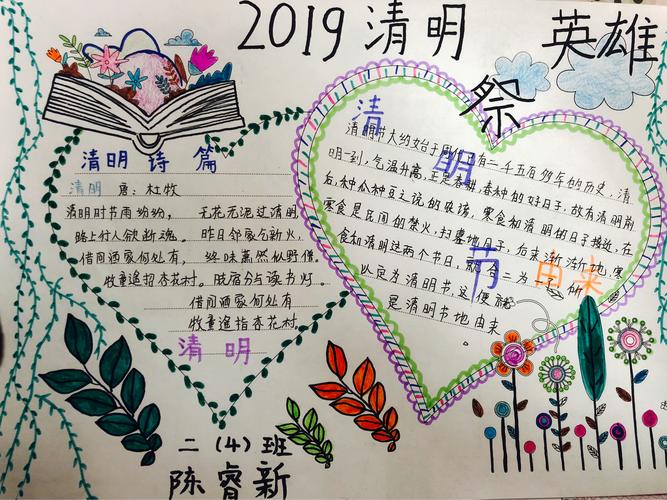 2019清明 英雄
祭
清明诗篇
清明 唐:杜牧
清明时节雨纷纷, 无花无泥过清明
路上行人欲断魂。 昨日邻家乞新火,
借问酒家何处有, 终味萧然似野僧。
牧童遥指杏花村。 脱宿分与读书灯。
借问酒家何处有
牧童遥指杏花村
清明
清明节由来
清明节大约始于周代,有二千五百多年的历史,清
明一到,气温升高,正是春耕,春种的好日子,故有清明前
后,种瓜种豆之说的农谚,寒食和清明的日子接近,在
寒食是民间的禁火,扫墓地日子,后来渐渐地,寒
食和清明这两个节日,就合二为一了,所
以定为清明节,这便就
是清明节地由来
。
二(4)班
陈睿新